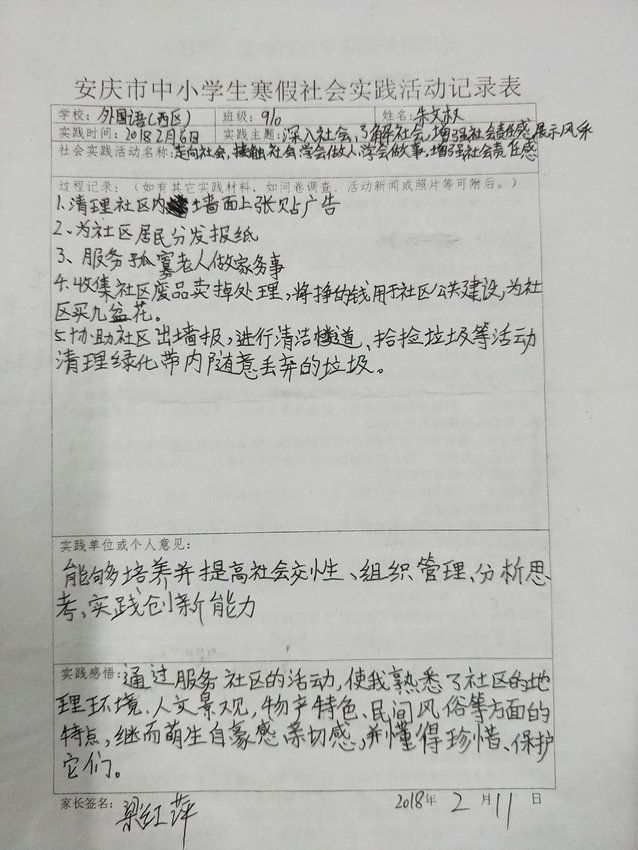 安庆市中小学生寒假社会实践活动记录表
学校：外国语(西区) 班级：910 姓名：朱文权
实践时间：2018 2月6日 实践主题：深入社会，了解社会，增强社会责任感 展示风采
社会实践活动名称：走向社会，接触社会，学会做人，学会做事，增强社会责任感
过程记录：（如有其它实践材料，如问卷调查、活动新闻或照片等可附后。）
1、清理社区内墙面上张贴广告
2、为社区居民分发报纸
3、服务孤寡老人做家务事
4、收集社区废品卖掉处理，将挣的钱用于社区公共建设，为社
区买几盆花。
5、协助社区出墙报，进行清洁楼道、拾捡垃圾等活动
清理绿化带内随意丢弃的垃圾。
实践单位或个人意见：
能够培养并提高社会交性、组织管理、分析思
考，实践创新能力
实践感悟：通过服务社区的活动，使我熟悉了社区的地
理环境、人文景观，物产特色、民间风俗等方面的
特点，继而萌生自豪感亲切感，并懂得珍惜、保护
它们。
家长签名：梁红萍 2018年 2 月 11 日